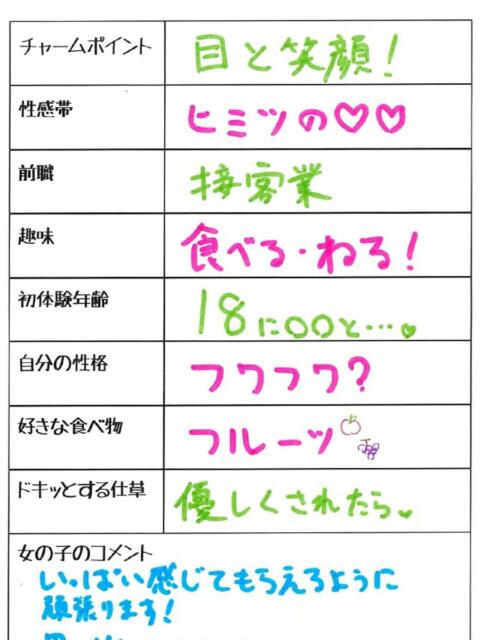 チャームポイント
目と笑顔!
性感帯
ヒミツの♡♡
前職
接客業
趣味
食べる・ねる!
初体験年齢
18に○○と…♥。
自分の性格
フワフワ?
好きな食べ物
フルーツ
ドキッとする仕草
優しくされたら。♥
女の子のコメント
いっぱい感じてもらえるように
頑張ります!